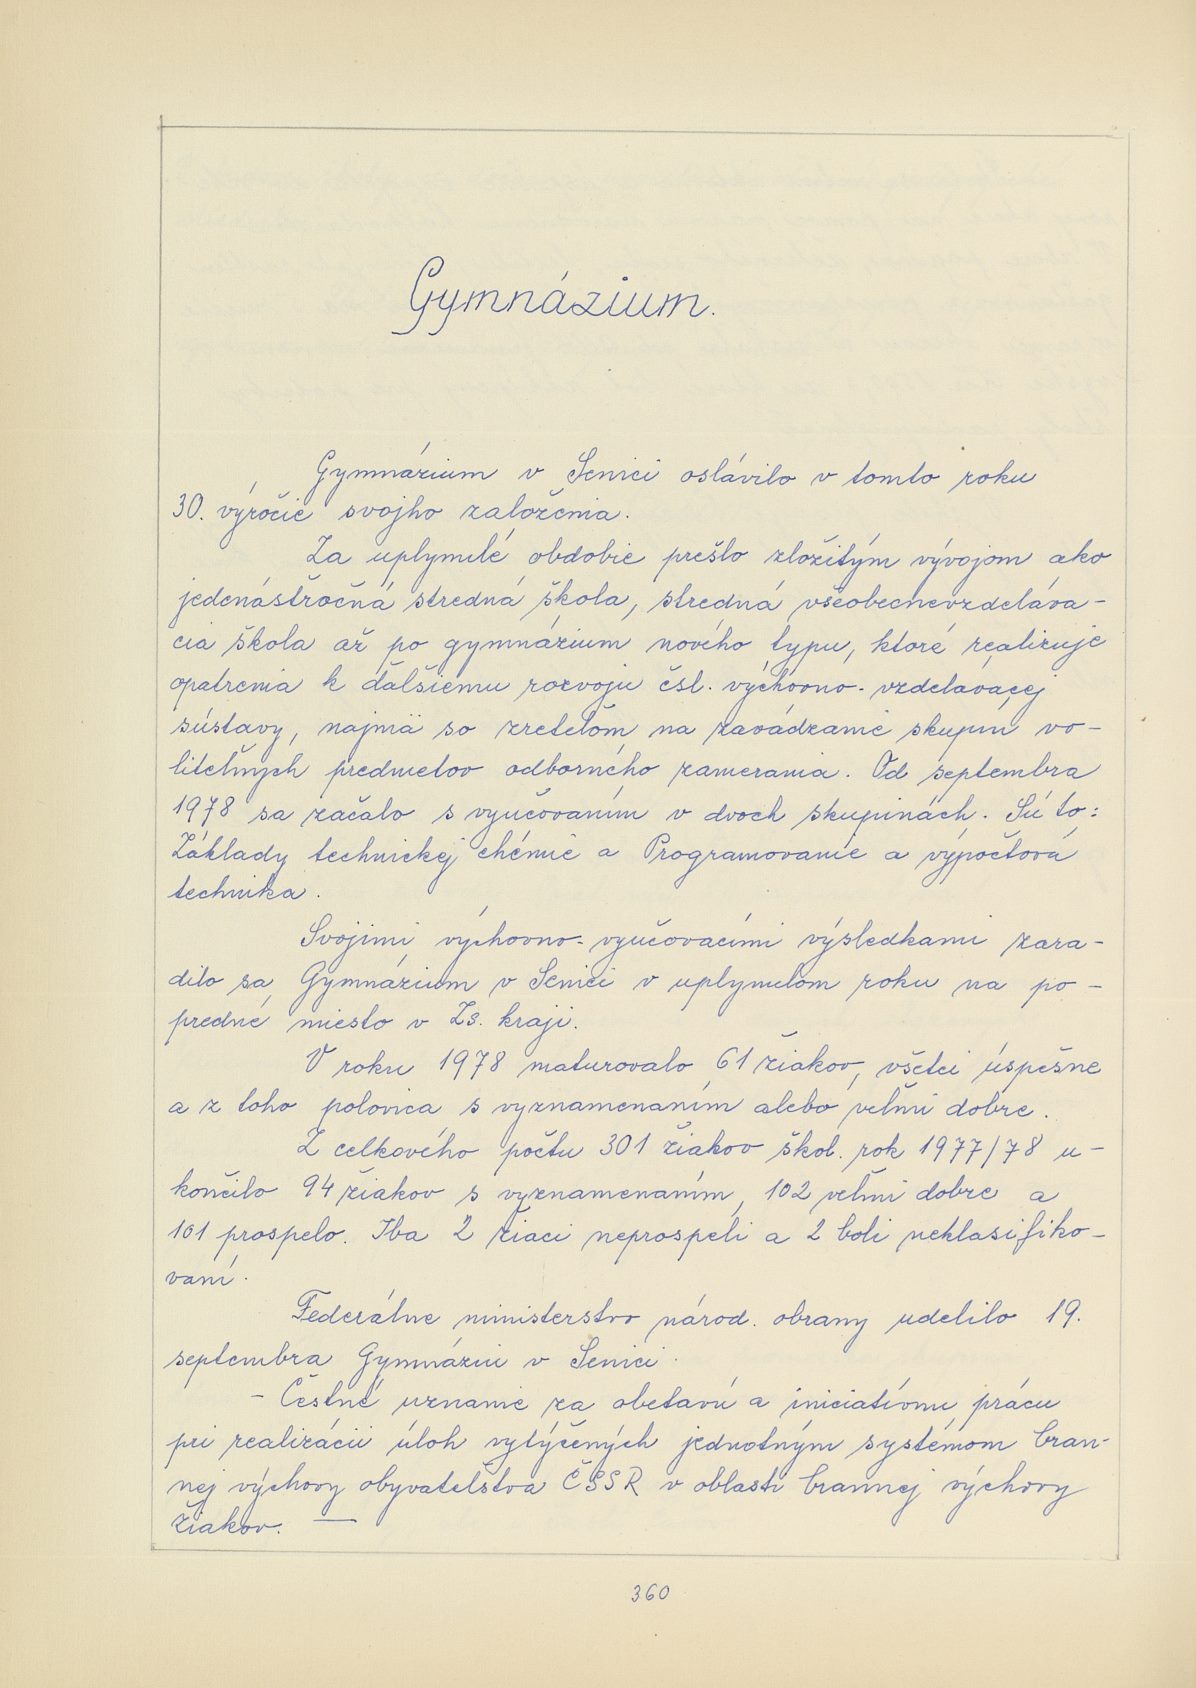 Gymnázium.
Gymnázium v Senici oslávilo v tomto roku
30. výročie svojho založenia.
Za uplynulé obdobie prešlo zložitým vývojom ako
jedenásťročná stredná škola, stredná všeobecnevzdeláva-
cia škola až po gymnázium nového typu, ktoré realizuje
opatrenia k ďalšiemu rozvoju čsl. výchovno-vzdelavacej
sústavy, najmä so zreteľom na zavádzanie skupín vo-
liteľných predmetov odborného zamerania. Od septembra
1978 sa začalo s vyučovaním v dvoch skupinách. Sú to:
Základy technickej chémie a Programovanie a výpočtová
technika.
Svojimi výchovno-vyučovacími výsledkami zara-
dilo sa Gymnázium v Senici v uplynulom roku na po-
predné miesto v Zs. kraji.
V roku 1978 maturovalo 61 žiakov, všetci úspešne
a z toho polovica s vyznamenaním alebo veľmi dobre.
Z celkového počtu 301 žiakov škol. rok 1977/78 u-
končilo 94 žiakov s vyznamenaním, 102 veľmi dobre a
101 prospelo. Iba 2 žiaci neprospeli a 2 boli neklasifiko-
vaní.
Federálne ministerstvo národ. obrany udelilo 19.
septembra Gymnáziu v Senici.
- Čestné uznanie za obetavú a iniciatívnu prácu
pri realizácii úloh vytýčených jednotným systémom bran-
nej výchovy obyvateľstva ČSSR v oblasti brannej výchovy
žiakov. —
360